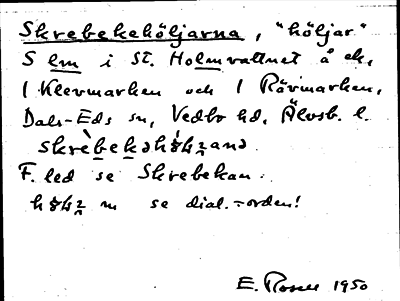 Skrebekehöljarna, "höljar"
S om i St. Holmvattnet å ek.
1 Klevmarken och 1 Rävmarken,
Dals-Eds sn, Vedbo hd, Älvsb. l.
F. led se Skrebekan.
m se dial.-orden!
E. Rosell 1950